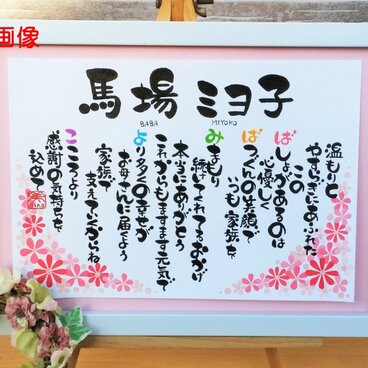 画像
馬場 ミヨ子
BABA MIYOKO
温もりと
やすらぎにあふれた
この
ばしょがあるのは
心優しく
ばつぐんの笑顔で
いつも家族を
みまもり
続けてくれてるおかげ
本当にありがとう
これからもますます元気で
より多くの幸せが
お母さんに届くよう
家族で
支えていくからね
こころより
感謝の気持ちを
込めて